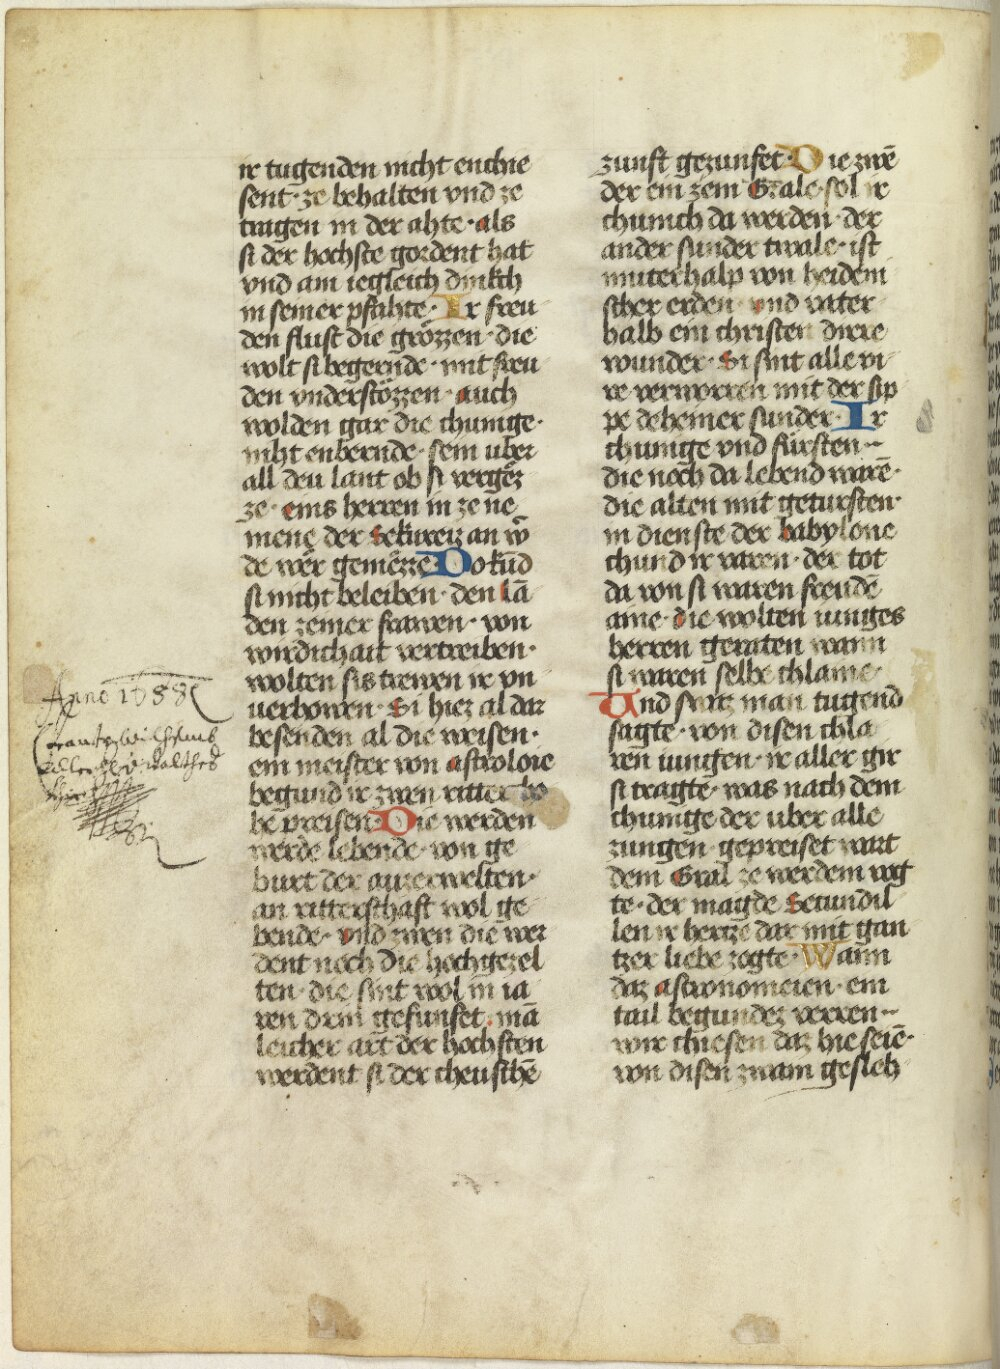 ir tugenden nicht enchie
sent· ze behalten vnd ze
tragen in der ahte· als
si der hochste gordent hat
vnd am iegleich dinkch
in seiner pfahte· Ir freu
den flust die grözzen· die
wolt si begernde· mit freu
den vnderstözzen· auch
wolden gar die chunige·
niht enbernde· sein uber
all deu lant ob si vergëz
ze· eins herren in ze ne
mene der Sekureiz an w̄
de wër gemëzze Do kūd
si nicht beleiben· den lā
den zeiner frawen· von
wirdichait vertreiben·
wolten sis trewen ir vn
uerbowen· Si hiez al dar
besenden al die weisen·
ein meister von astrolore
begund ir zwen ritter ho
he preisen· Die werden
werde lebende· von ge
burt der auzerwelten·
an ritterschaft wol ge
bende· vnd zwen die wer
dent noch die hochgezel
ten· die sint wol in ia
ren drin gefunfet· mā
leicher art der hochsten
werdent si der cheuschē
Anno 1588
zunft gezunfet· Die zwē
der ein zem Grale· sol ir
chunich da werden· der
ander sunder twale· ist
muterhalp von heideni
scher erden· vnd vater
halb ein christen dirre
wunder· Si sint alle vi
re verworren mit der sip
pe deheiner sunder· Ir
chunige vnd fürsten
die noch da lebend warē·
die alten mit getursten·
in dienste der babylone
chund ir waren· der tot
da von si waren freudē
aine· die wolten iunges
herren geraten wann
si waren selbe chlaine·
Und swaz man tugend
sagte· von disen chla
ren iungen· ir aller gir
si tragte· was nach dem
chunige der uber alle
zungen· gepreiset wart
dem Gral ze werdem vog
te· der magde Secundil
len ir hertze dar mit gan
tzer liebe zogte· Wann
daz astronomeien· ein
tail begundez verren
wir chiesen daz hie seiē·
von disen zwain gesleh